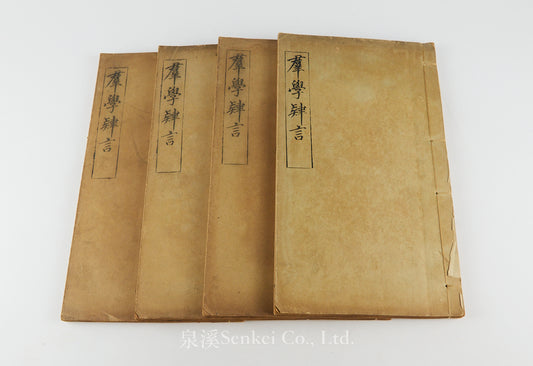 羣學肄言
羣學肄言
羣學肄言
羣學肄言
泉溪Senkei Co., Ltd.